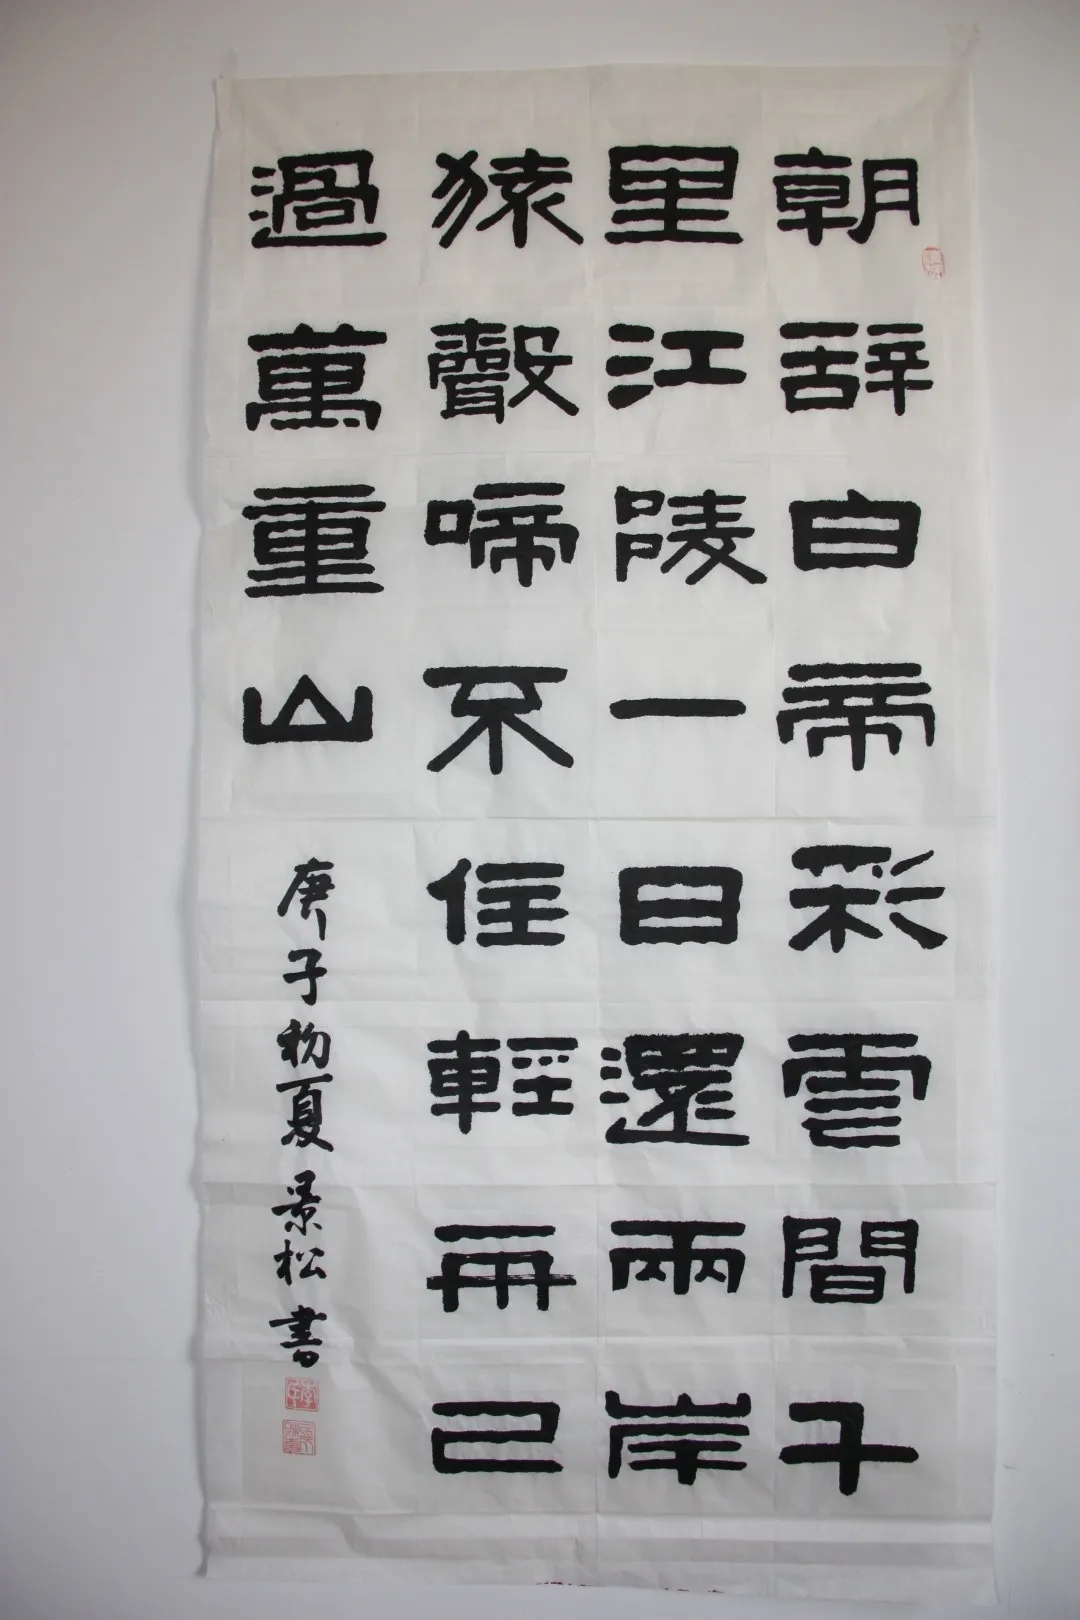 朝辞白帝彩雲間千
里江陵一日還兩岸
猿聲啼不住輕舟已
過萬重山
庚子初夏景松書